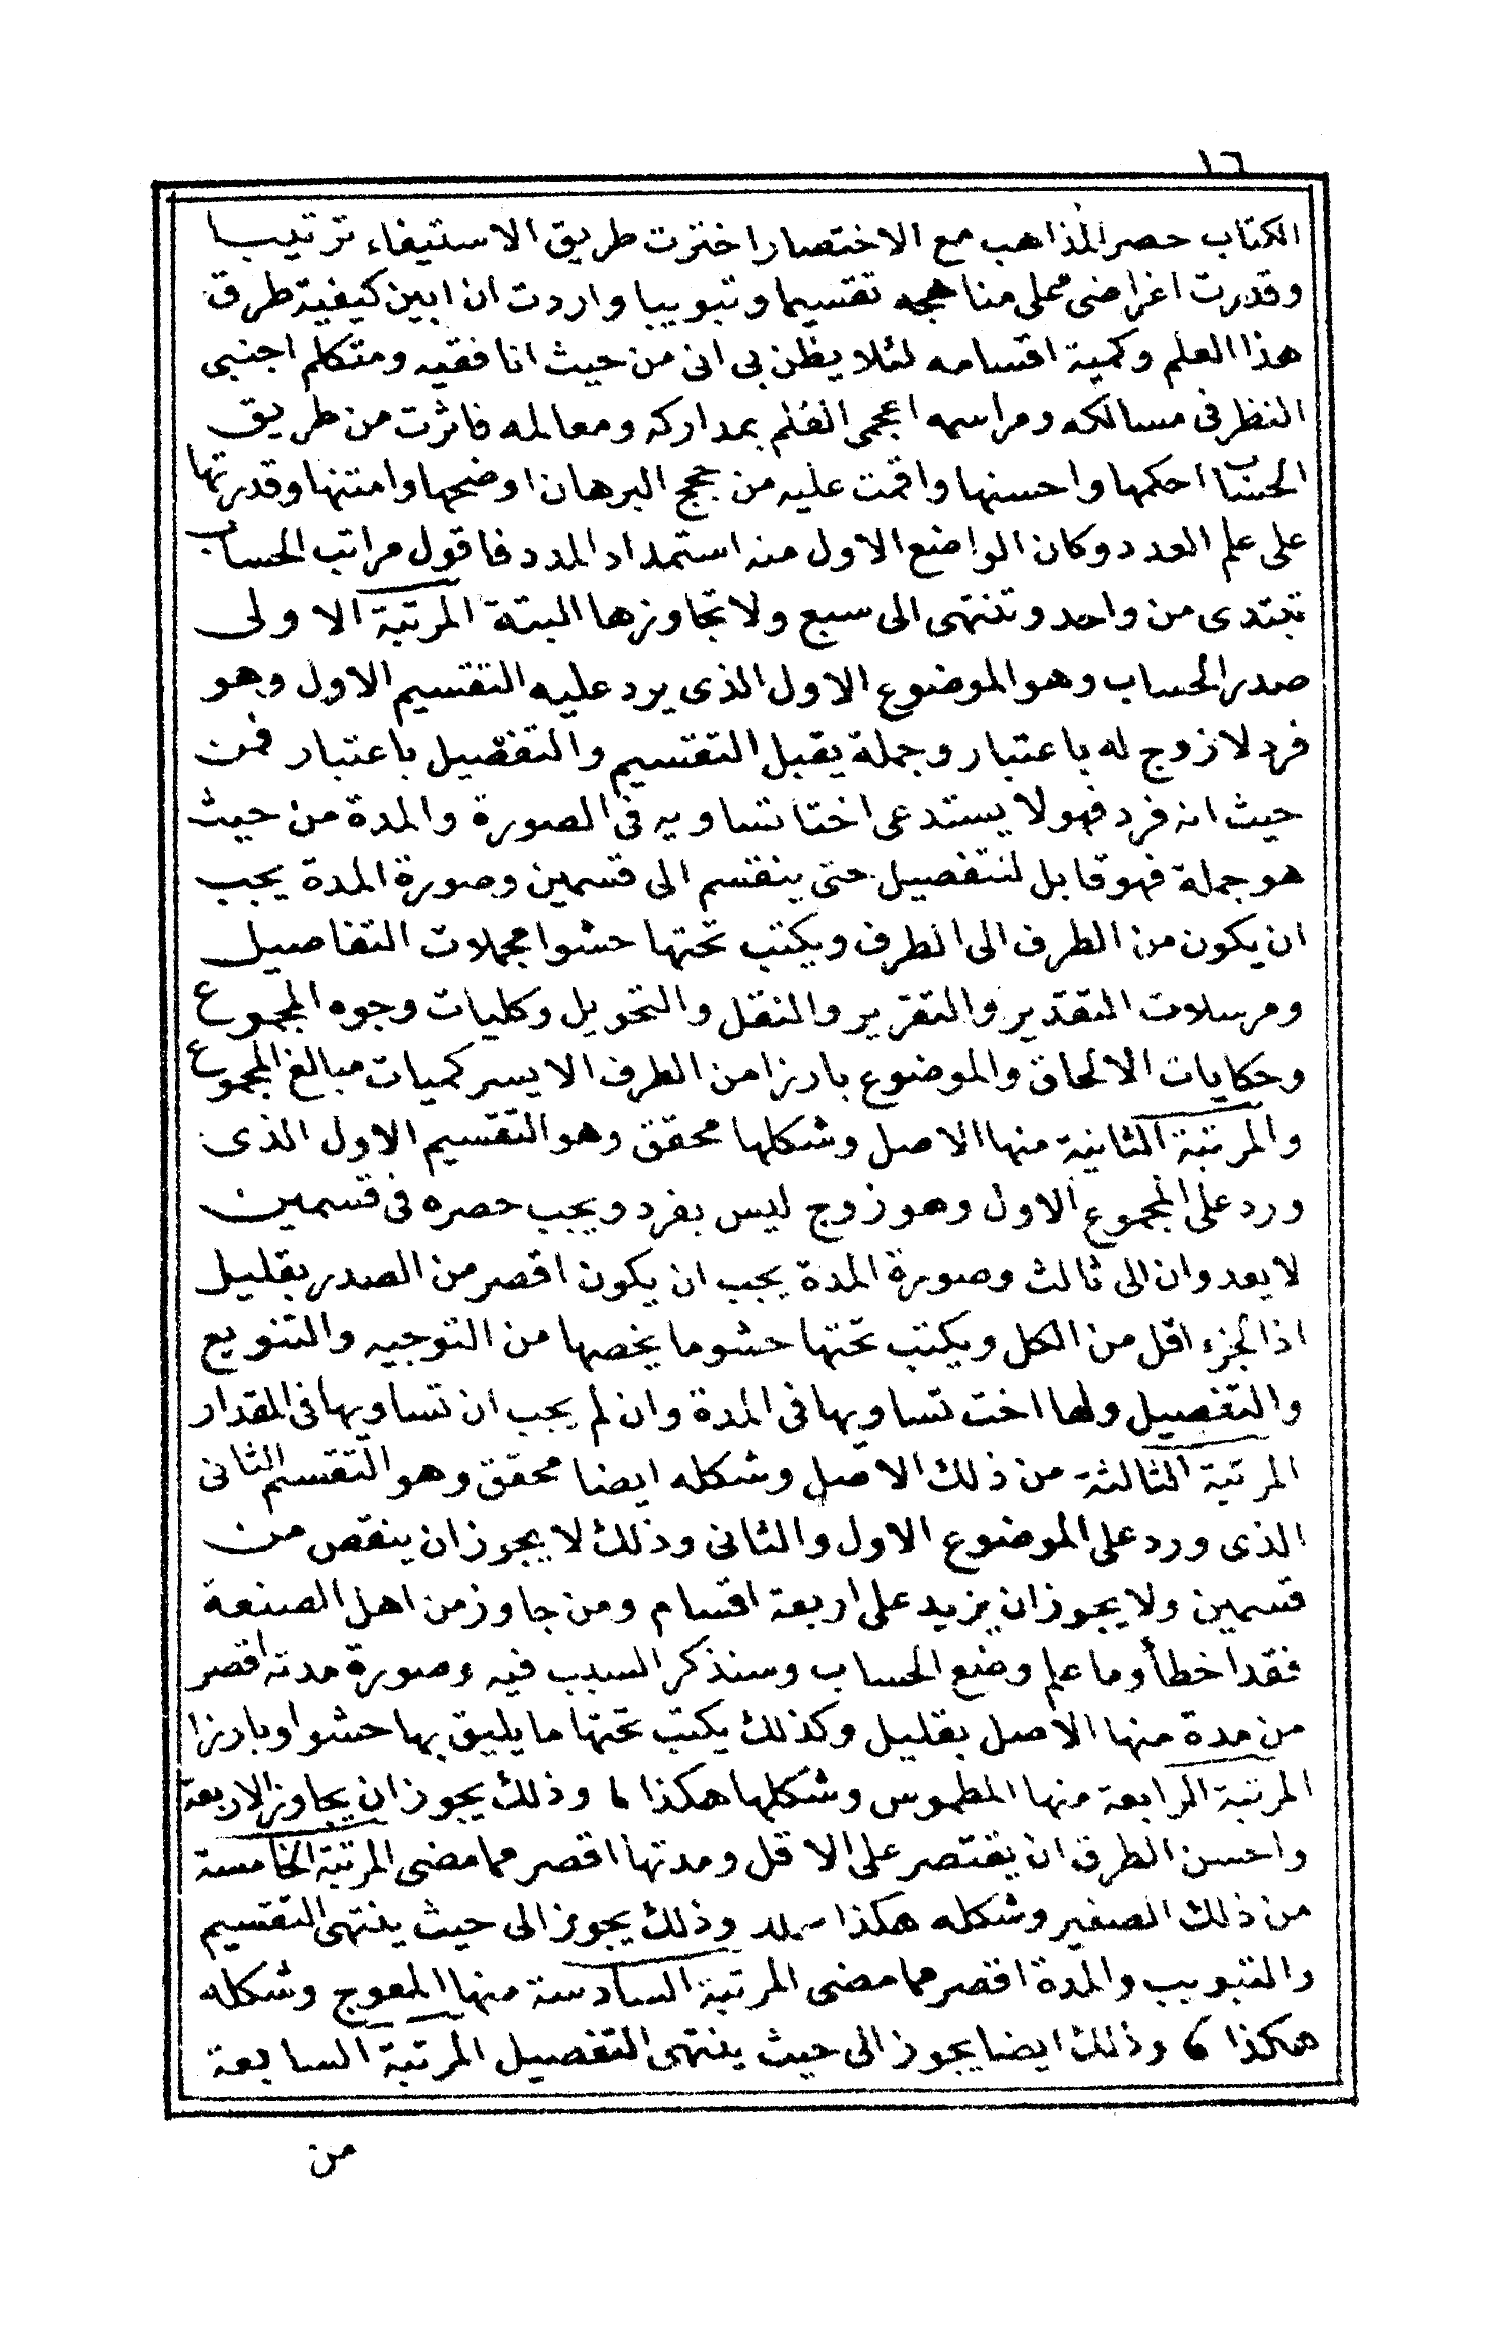 ١٦
الكتاب حصر المذاهب مع الاختصار اخترت طريق الاستيفاء ترتيبا
وقدرت اغراضى على مناهجه تقسيما وتبويبا واردت ان ابين كيفية طرق
هذا العلم وكمية اقسامه لئلا يظن بى انى من حيث انا فقيه ومتكلم اجنبى
النظر فى مسالكه ومراسمه اعجمى القلم بمداركه ومعالمه فاثرت من طريق
الحساب احكمها واحسنها واقمت عليه من حجج البرهان اوضحها وامتنها وقدرتها
على علم العدد وكان الواضع الاول منه استمداد المدد فاقول مراتب الحساب
تبتدى من واحد وتنتهى الى سبع ولا تجاوزها البتة المرتبة الاولى
صدر الحساب وهو الموضوع الاول الذى يرد عليه التقسيم الاول وهو
فرد لا زوج له باعتبار وجملة يقبل التقسيم والتفصيل باعتبار فمن
حيث انه فرد فهو لا يستدعى اختا تساويه فى الصورة والمدة من حيث
هو جملة فهو قابل لتفصيل حتى ينقسم الى قسمين وصورة المدة يجب
ان يكون من الطرف الى الطرف ويكتب تحتها حشوا مجملات التفاصيل
ومرسلات التقدير والتقرير والنقل والتحويل وكليات وجوه المجموع
وحكايات الالحاق والموضوع بارزا من الطرف الايسر كميات مبالغ المجموع
والمرتبة الثانية منها الاصل وشكلها محقق وهو التقسيم الاول الذى
ورد على المجموع الاول وهو زوج ليس بفرد ويجب حصره فى قسمين
لا يعدوان الى ثالث وصورة المدة يجب ان يكون اقصر من الصدر بقليل
اذ الجزء اقل من الكل ويكتب تحتها حشوما يخصها من التوجيه والتنويع
والتفصيل ولها اخت تساويها فى المدة وان لم يجب ان تساويها فى المقدار
المرتبة الثالثة من ذلك الاصل وشكله ايضا محقق وهو التقسم الثانى
الذى ورد على الموضوع الاول والثانى وذلك لا يجوز ان ينقص من
قسمين ولا يجوز ان يزيد على اربعة اقسام ومن جاوز من اهل الصنعة
فقد اخطأ وما علم وضع الحساب وسنذكر السبب فيه وصورة مدته اقصر
من مدة منها الاصل بقليل وكذلك يكتب تحتها ما يليق بها حشوا وبارزا
المرتبة الرابعة منها المطموس وشكلها هكذا وذلك يجوز ان يجاوز الاربعة
واحسن الطرق ان يقتصر على الاقل ومدتها اقصر مما مضى المرتبة الخامسة
من ذلك الصغير وشكله هكذا وذلك يجوز الى حيث ينتهى التقسيم
والتبويب والمدة اقصر مما مضى المرتبة السادسة منها المعوج وشكله
هكذا وذلك ايضا يجوز الى حيث ينتهى التفصيل المرتبة السابعة
من